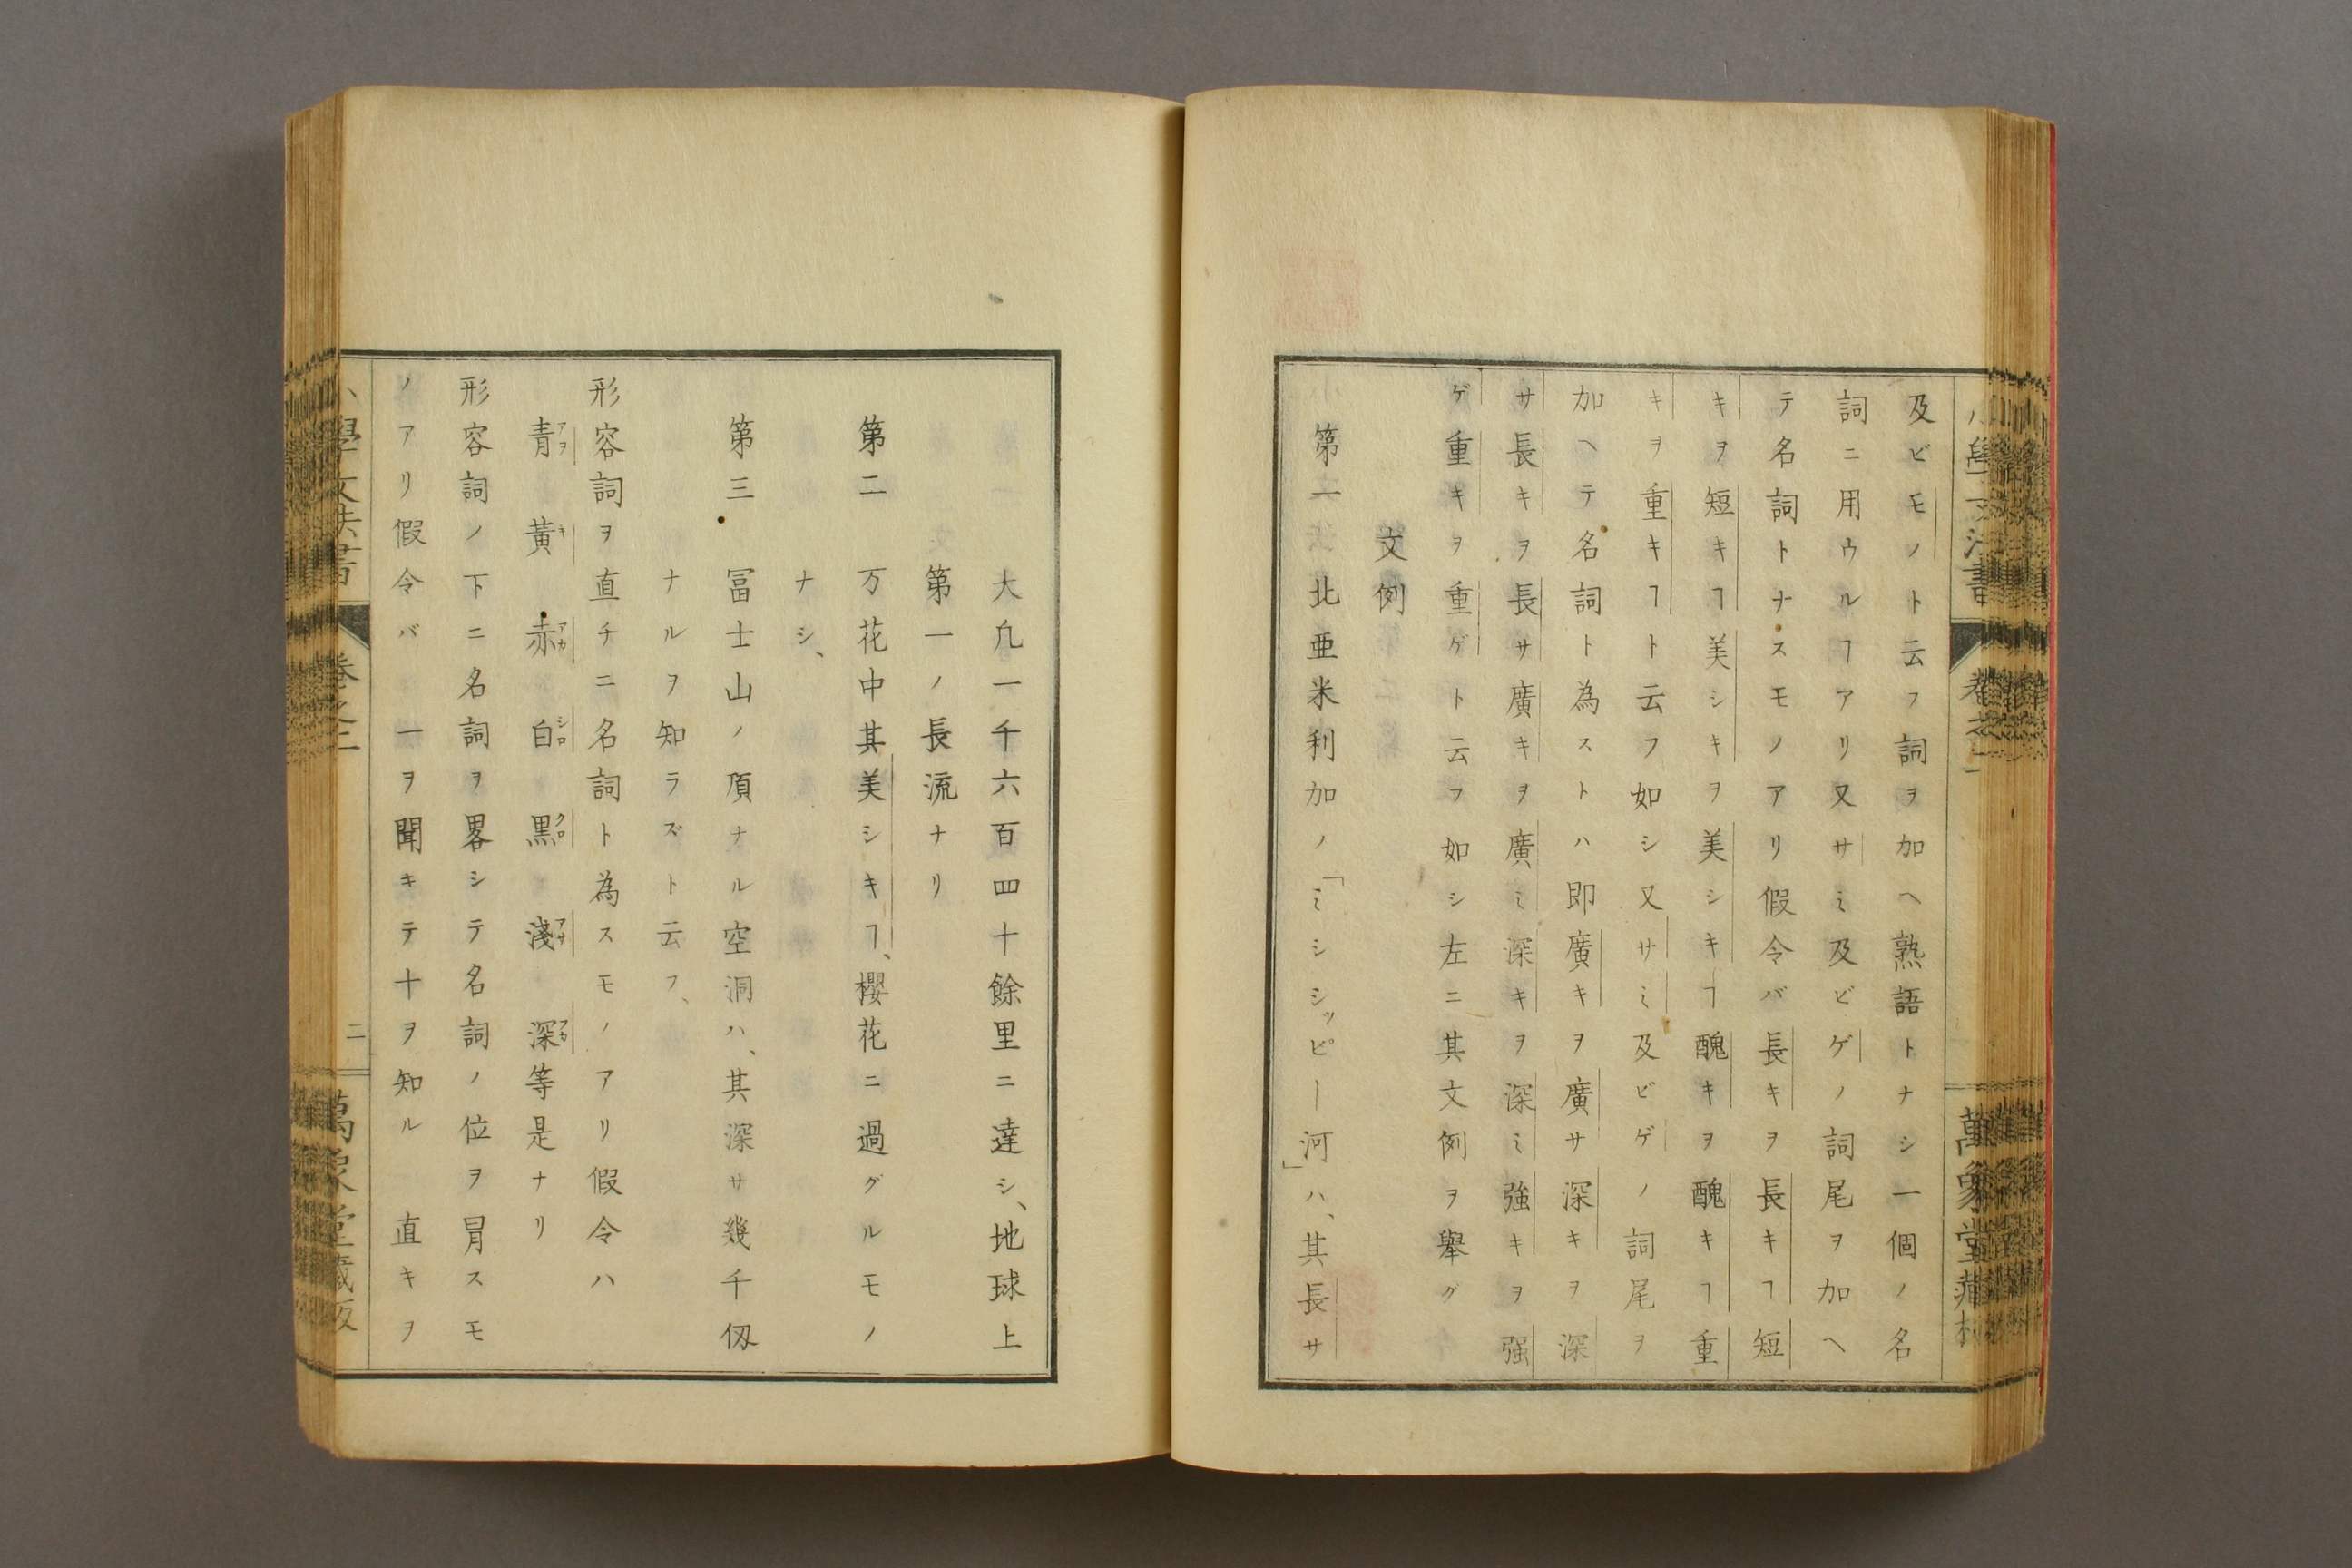 及ビモノト云フ詞ヲ加ヘ熟語トナシ一個ノ名
詞ニ用ウルヿアリ又サミ及ビゲノ詞尾ヲ加ヘ
テ名詞トナスモノアリ假令バ長キヲ長キヿ短
キヲ短キヿ美シキヲ美シキヿ醜キヲ醜キヿ重
キヲ重キヿト云フ如シ又サミ及ビゲノ詞尾ヲ
加ヘテ名詞ト為ストハ即廣キヲ廣サ深キヲ深
サ長キヲ長サ廣キヲ廣ミ深キヲ深ミ強キヲ强
ゲ重キヲ重ゲト云フ如シ左ニ其文例ヲ舉グ
文例
第一 北亜米利加ノ「ミシシッピー河」ハ、其長サ
大凢一千六百四十餘里ニ達シ、地球上
第一ノ長流ナリ
第二 万花中其美シキヿ、櫻花ニ過グルモノ
ナシ、
第三 冨士山ノ頂ナル空洞ハ、其深サ幾千仭
ナルヲ知ラズト云フ、
形容詞ヲ直チニ名詞ト為スモノアリ假令ハ
青アヲ 黃キ 赤アカ 白シロ 黒クロ 淺アサ 深フカ等是ナリ
形容詞ノ下ニ名詞ヲ畧シテ名詞ノ位ヲ冐スモ
ノアリ假令バ 一ヲ聞キテ十ヲ知ル 直キヲ
小學文法書 卷之二 二 萬象堂藏版